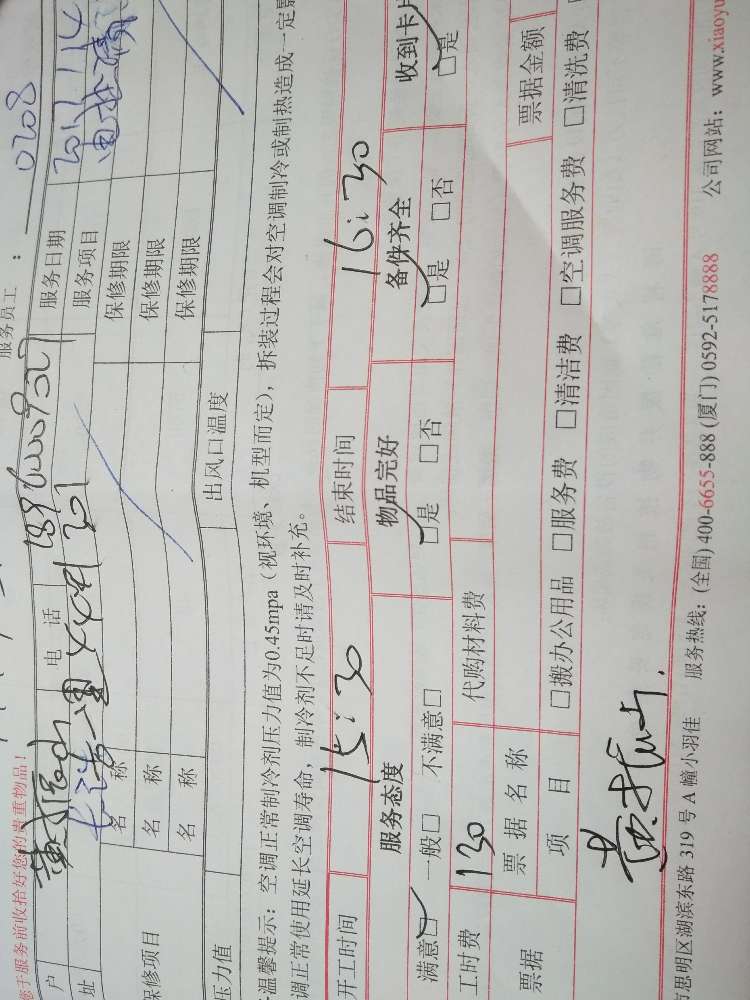 服务员工： 0208
您于服务前收拾好您的贵重物品！
户 电 话 服务日期
址 长浩 里 44# 201 服务项目
名 称 保修期限
保修项目 名 称 保修期限
名 称 保修期限
压力值 出风口温度
温馨提示：空调正常制冷剂压力值为0.45mpa（视环境、机型而定），拆装过程会对空调制冷或制热造成一定影
调正常使用延长空调寿命，制冷剂不足时请及时补充。
开工时间 15:30 结束时间 16:30
服务态度 物品完好 备件齐全 收到卡片
满意□ 一般□ 不满意□ □是 □否 □是 □否 □是
工时费 130 代购材料费
票据 票 据 名 称 票据金额
项 目 □搬办公用品 □服务费 □清洁费 □空调服务费 □清洗费
黄振山.
市思明区湖滨东路 319 号 A 幢小羽佳 服务热线：(全国) 400-6655-888 (厦门) 0592-5178888 公司网站：www.xiaoyu